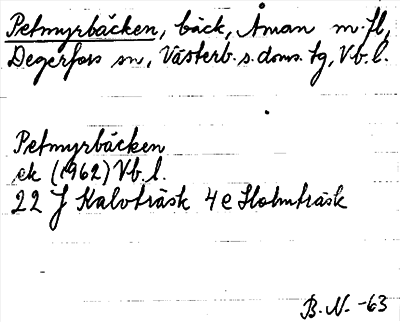 Petmyrbäcken, bäck, Åman m. fl,
Degerfors sn, Västerb. s. doms. tg, Vb. l.
Petmyrbäcken
ek (1962) Vb. l.
22 J Kalvträsk 4 e Holmträsk
B. N. -63